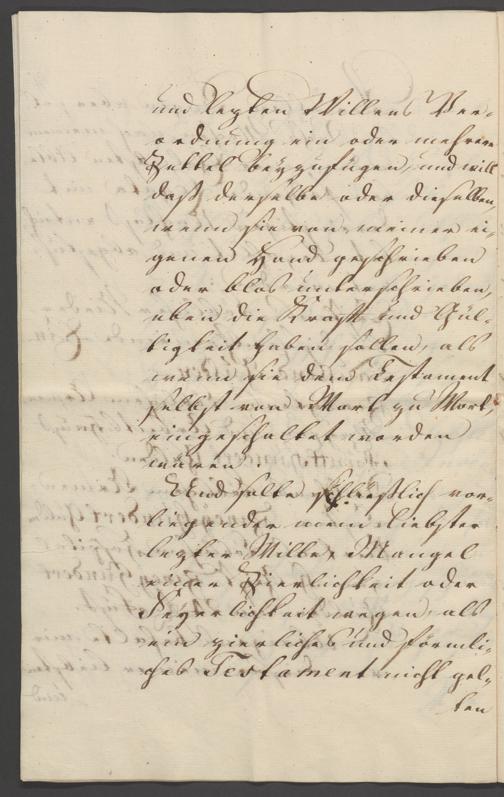 und lezten Willens Ver-
ordnung ein oder mehrere
Zettel beyzufügen, und will
daß derselbe oder dieselben,
wenn sie von meiner ei-
genen Hand geschrieben
oder blos unterschrieben,
eben die Kraft und Gül-
tigkeit haben sollen, als
wenn sie dem Testament
selbst von Wort zu Wort
eingeschaltet worden
wären.
Und sollte schließlich vor-
liegender mein liebster
lezter Wille, Mangel
einer Zierlichkeit oder
Feyerlichkeit wegen, als
ein zierliches und förmli-
ches Testament nicht gel-
ten